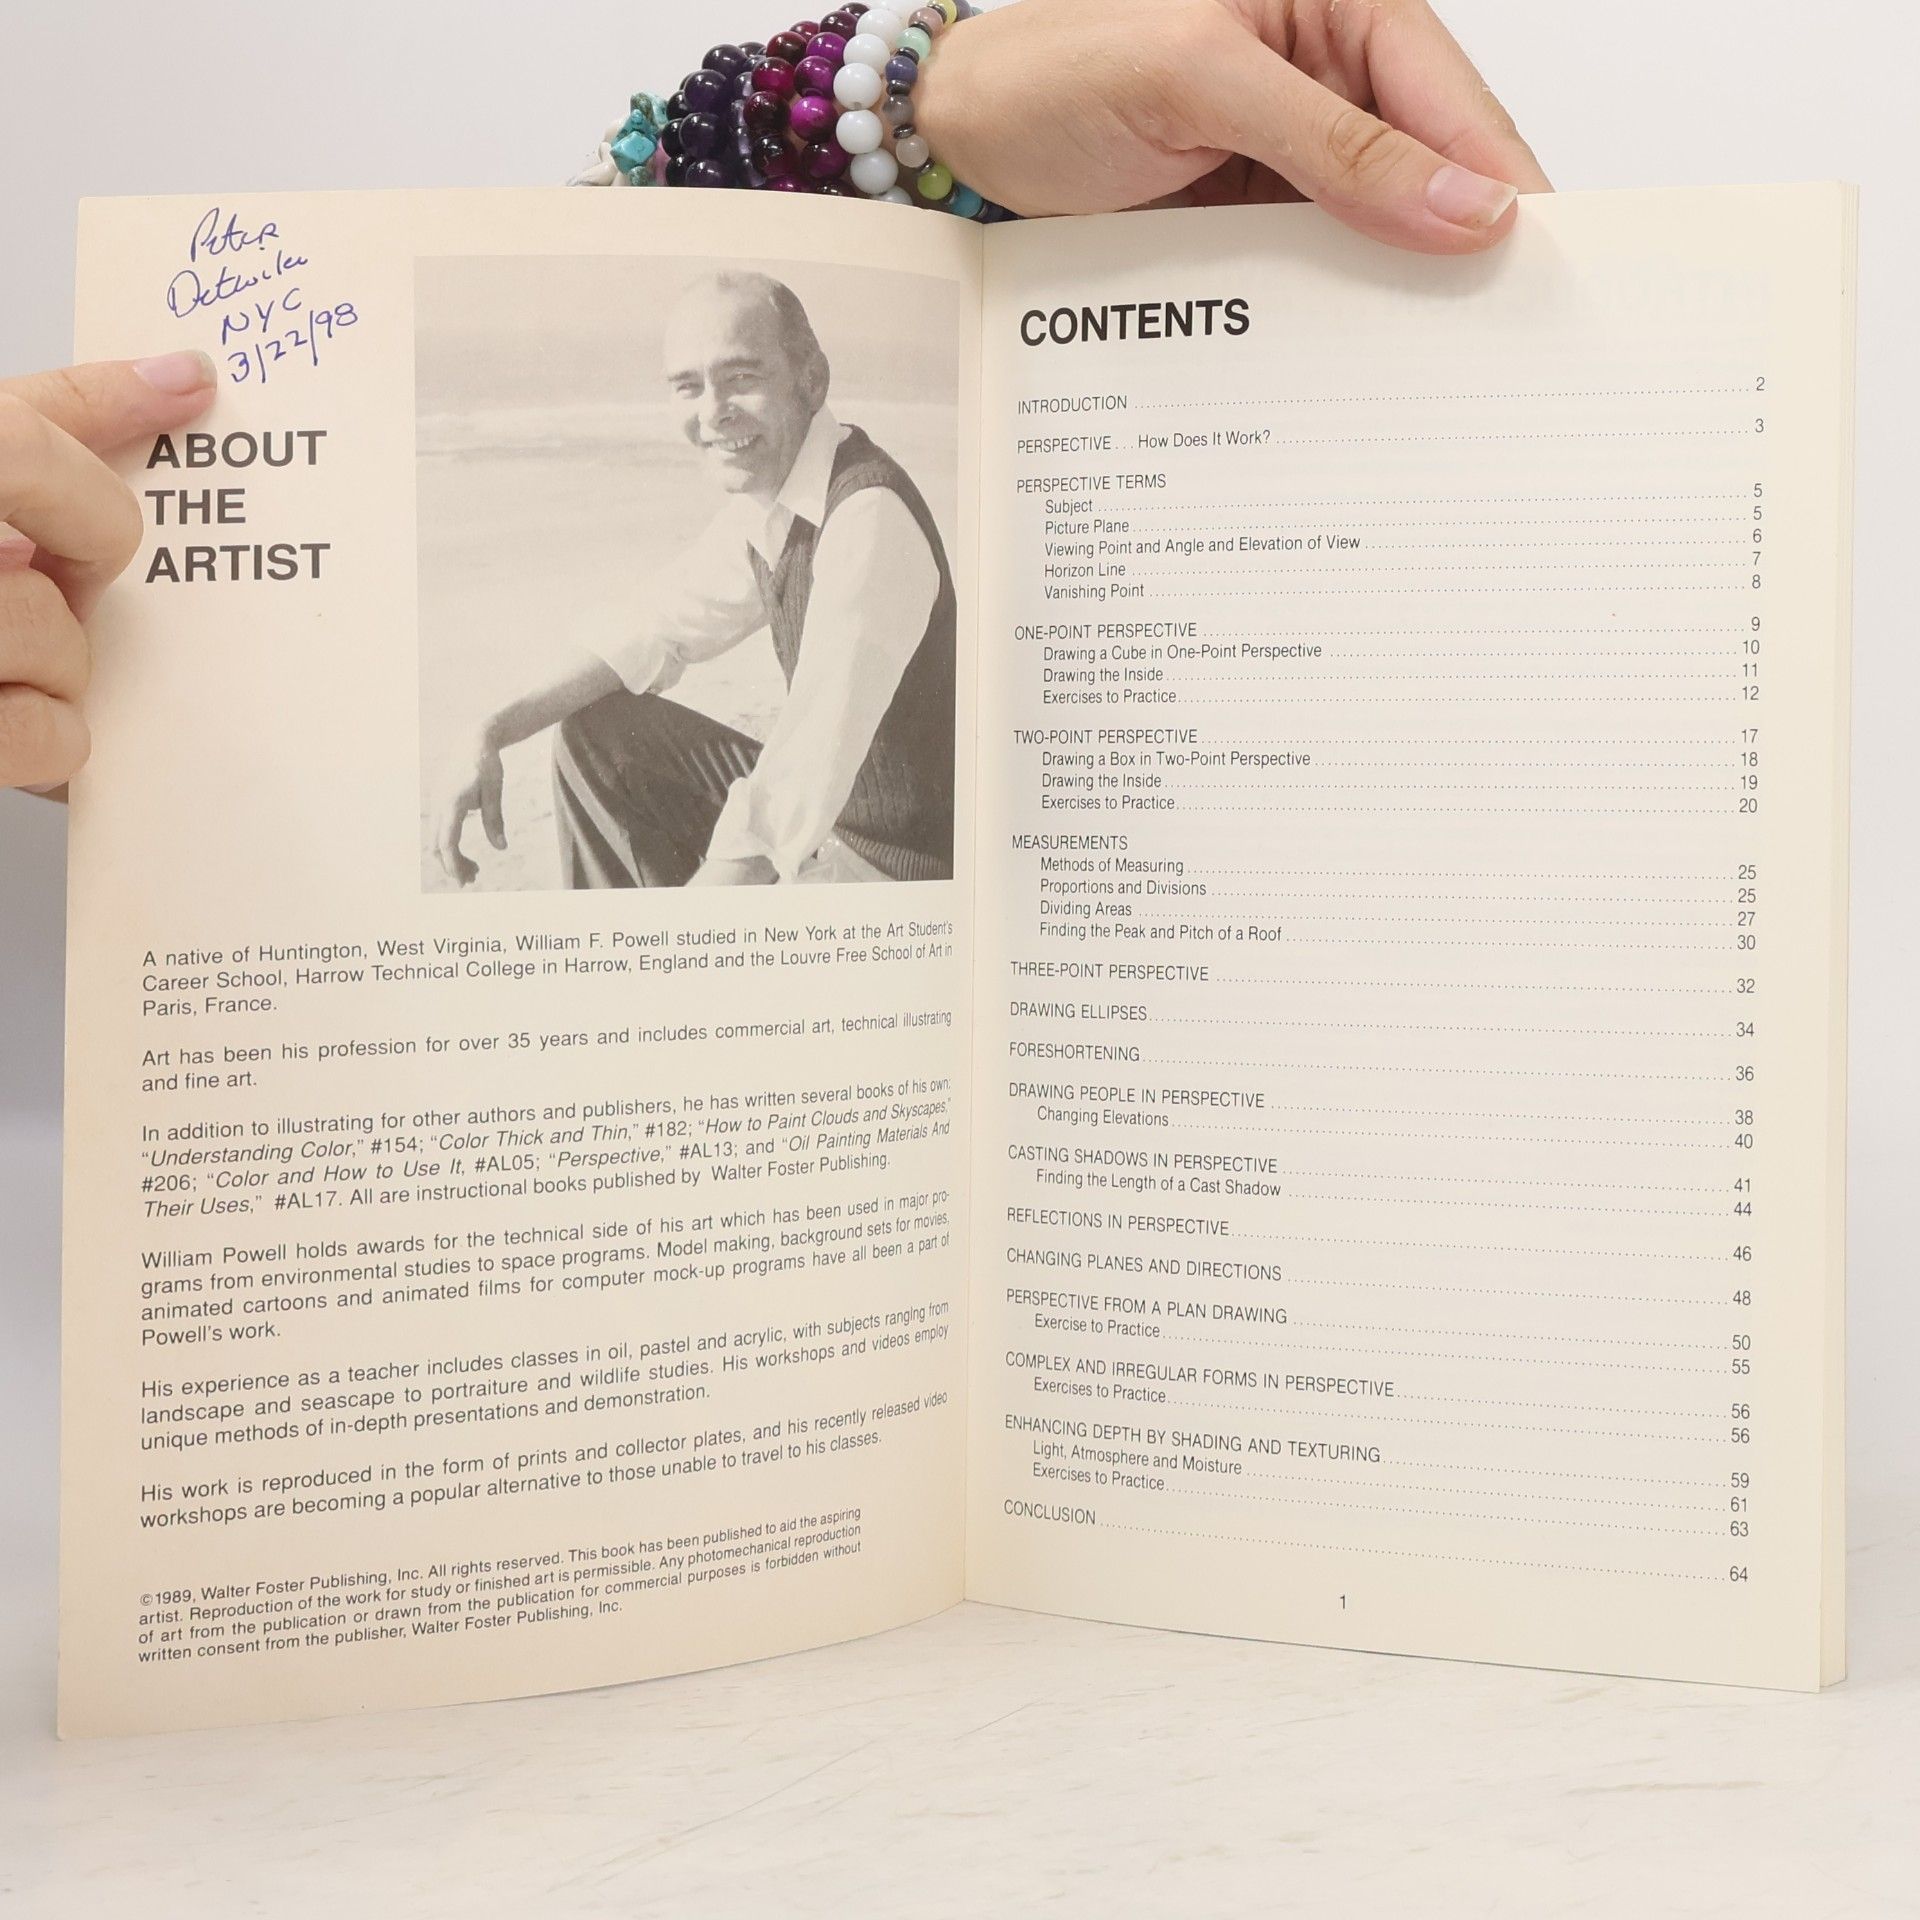 Peter
Detwiler
NYC
3/22/98
ABOUT
THE
ARTIST
A native of Huntington, West Virginia, William F. Powell studied in New York at the Art Student's
Career School, Harrow Technical College in Harrow, England and the Louvre Free School of Art in
Paris, France.
Art has been his profession for over 35 years and includes commercial art, technical illustrating
and fine art.
In addition to illustrating for other authors and publishers, he has written several books of his own:
“Understanding Color,” #154; “Color Thick and Thin,” #182; “How to Paint Clouds and Skyscapes,”
#206; “Color and How to Use It, #AL05; “Perspective,” #AL13; and “Oil Painting Materials And
Their Uses,” #AL17. All are instructional books published by Walter Foster Publishing.
William Powell holds awards for the technical side of his art which has been used in major pro-
grams from environmental studies to space programs. Model making, background sets for movies,
animated cartoons and animated films for computer mock-up programs have all been a part of
Powell's work.
His experience as a teacher includes classes in oil, pastel and acrylic, with subjects ranging from
landscape and seascape to portraiture and wildlife studies. His workshops and videos employ
unique methods of in-depth presentations and demonstration.
His work is reproduced in the form of prints and collector plates, and his recently released video
workshops are becoming a popular alternative to those unable to travel to his classes.
©1989, Walter Foster Publishing, Inc. All rights reserved. This book has been published to aid the aspiring
artist. Reproduction of the work for study or finished art is permissible. Any photomechanical reproduction
of art from the publication or drawn from the publication for commercial purposes is forbidden without
written consent from the publisher, Walter Foster Publishing, Inc.
CONTENTS
INTRODUCTION 2
PERSPECTIVE . . . How Does It Work? 3
PERSPECTIVE TERMS
Subject 5
Picture Plane 5
Viewing Point and Angle and Elevation of View 6
Horizon Line 7
Vanishing Point 8
ONE-POINT PERSPECTIVE 9
Drawing a Cube in One-Point Perspective 10
Drawing the Inside 11
Exercises to Practice 12
TWO-POINT PERSPECTIVE 17
Drawing a Box in Two-Point Perspective 18
Drawing the Inside 19
Exercises to Practice 20
MEASUREMENTS
Methods of Measuring 25
Proportions and Divisions 25
Dividing Areas 27
Finding the Peak and Pitch of a Roof 30
THREE-POINT PERSPECTIVE 32
DRAWING ELLIPSES 34
FORESHORTENING 36
DRAWING PEOPLE IN PERSPECTIVE 38
Changing Elevations 40
CASTING SHADOWS IN PERSPECTIVE 41
Finding the Length of a Cast Shadow 44
REFLECTIONS IN PERSPECTIVE 46
CHANGING PLANES AND DIRECTIONS 48
PERSPECTIVE FROM A PLAN DRAWING 50
Exercise to Practice 55
COMPLEX AND IRREGULAR FORMS IN PERSPECTIVE 56
Exercises to Practice 56
ENHANCING DEPTH BY SHADING AND TEXTURING 59
Light, Atmosphere and Moisture 61
Exercises to Practice 63
CONCLUSION 64
1